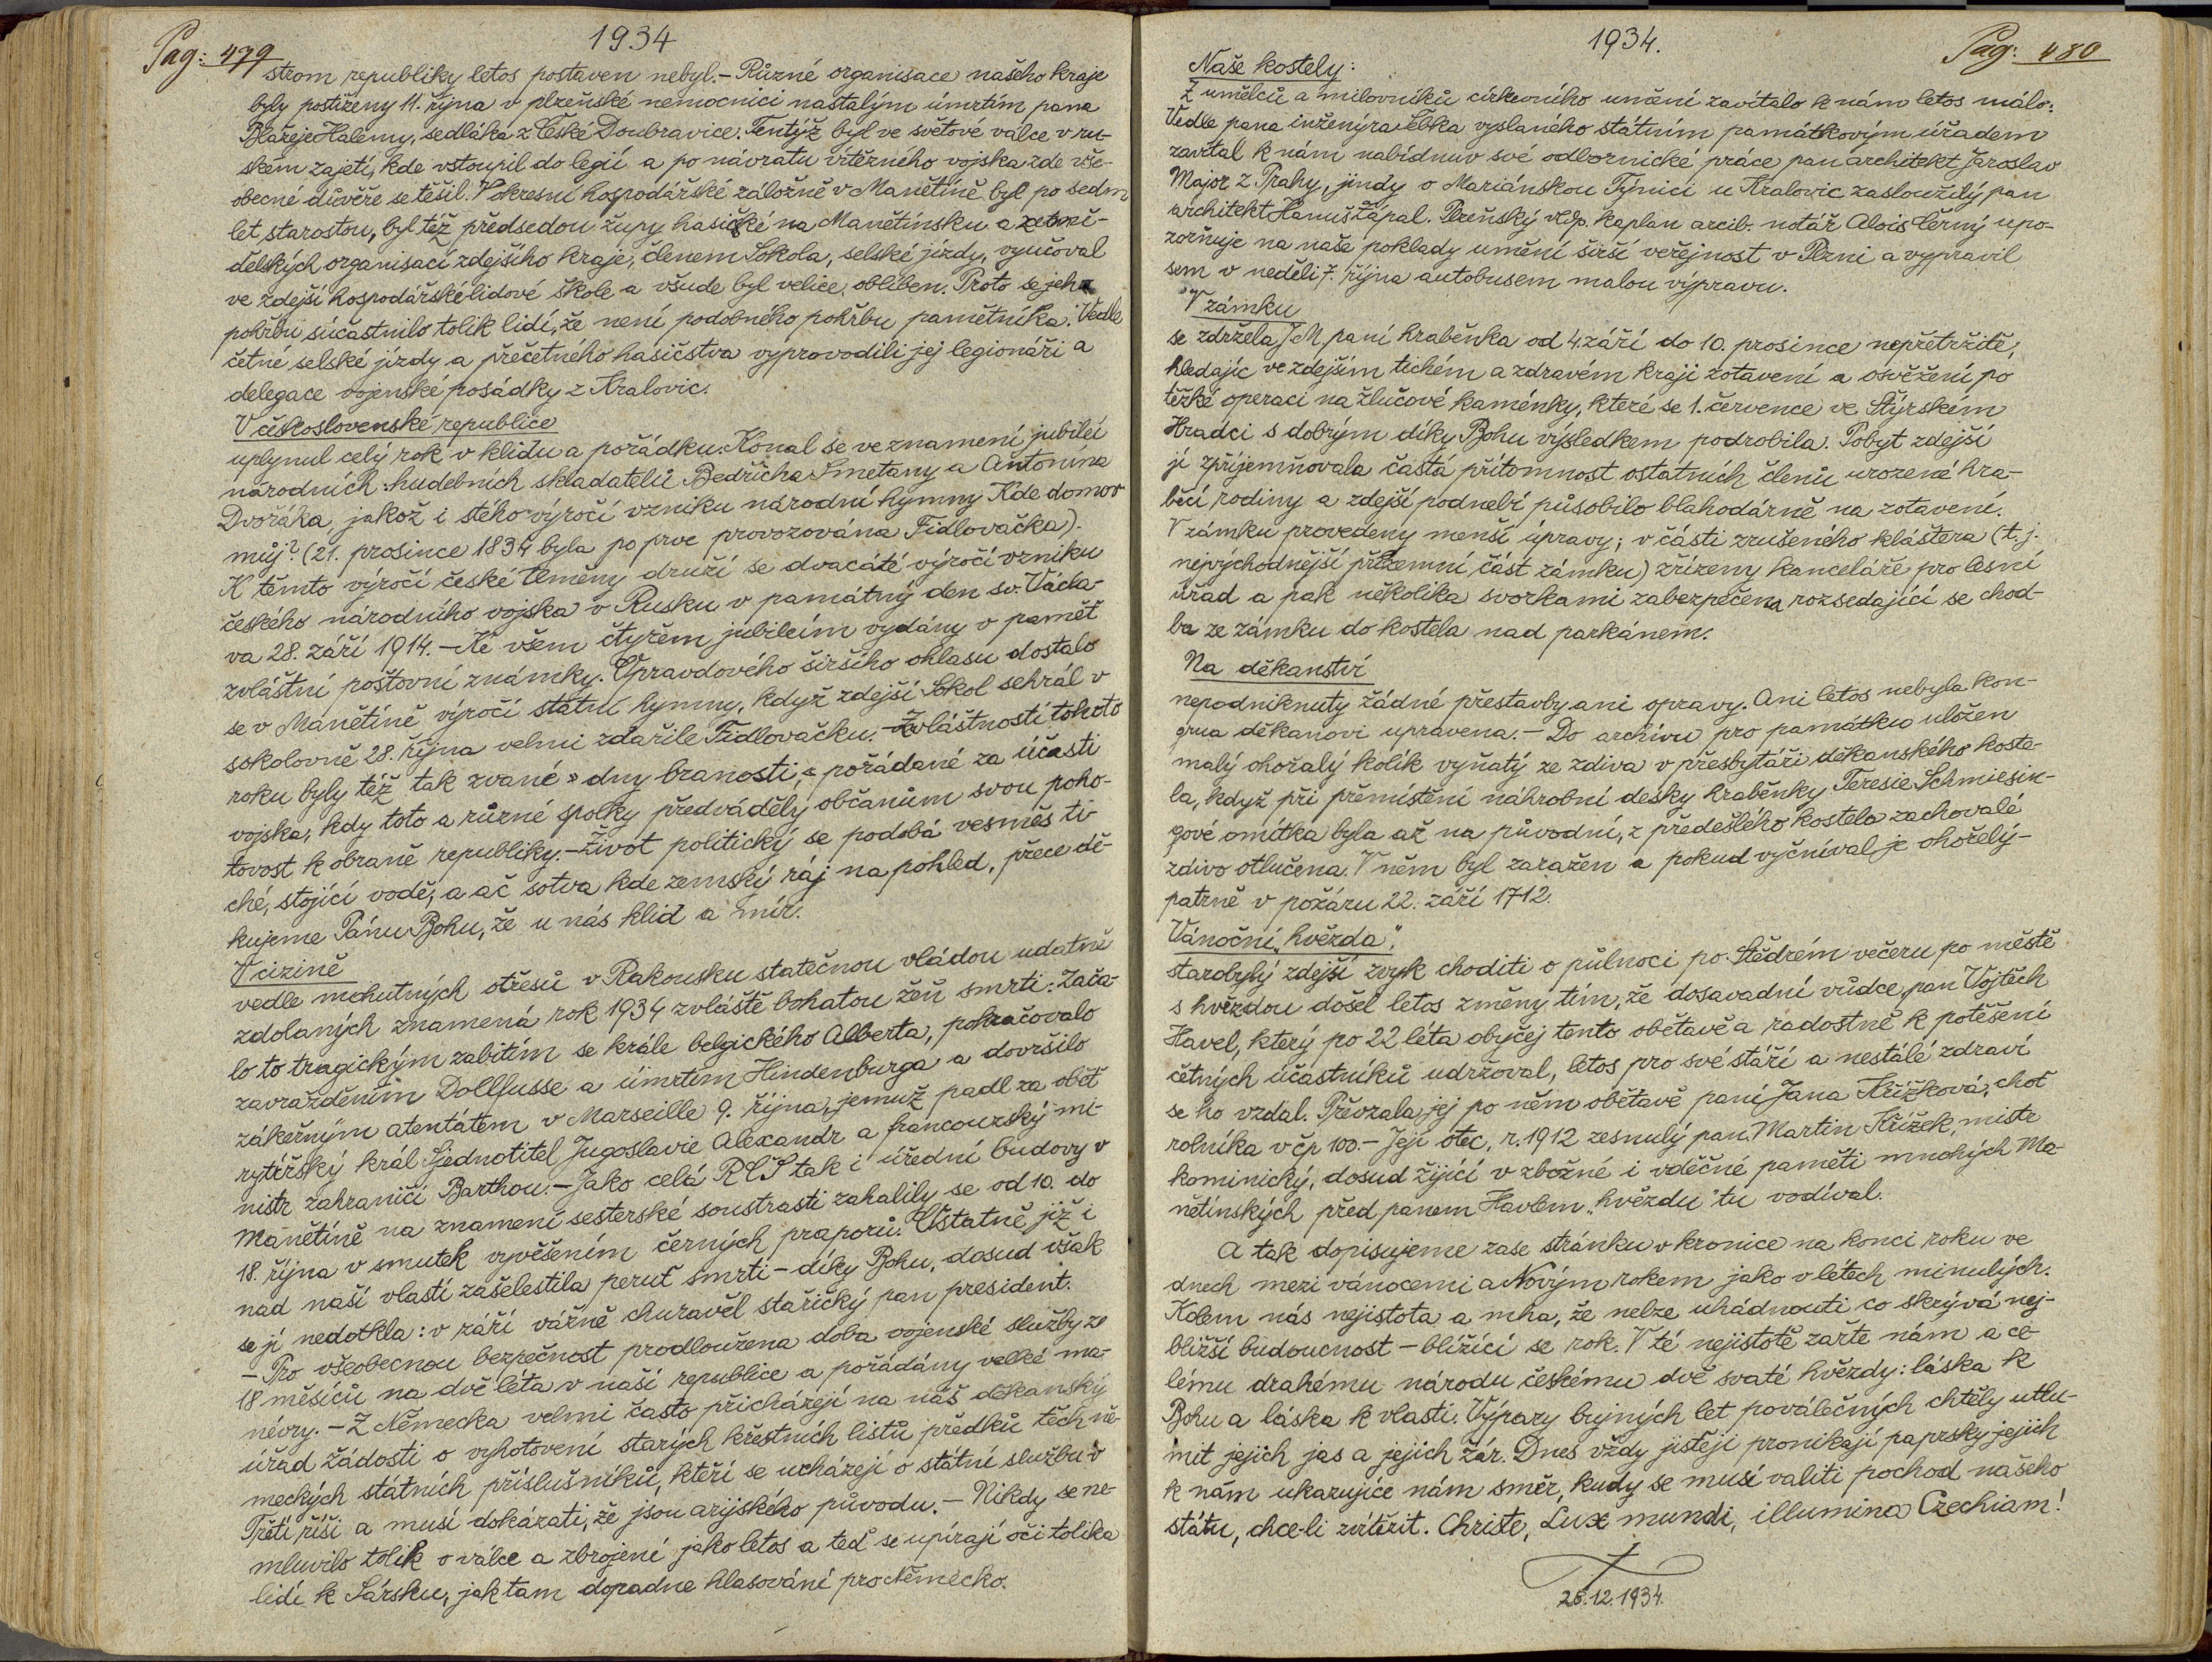 Pag: 479
1934
strom republiky letos postaven nebyl.- Různé organisace našeho kraje
byly postiženy 11. října v plzeňské nemocnici nastalým úmrtím pana
Blažeje Halémy, sedláka z České Doubravice. Tentýž byl ve světové válce v ru-
ském zajetí, kde vstoupil do legií a po návratu vítězného vojska zde vše-
obecné důvěře se těšil. V okresní hospodářské záložně v Manětíně byl po sedm
let starostou, byl též předsedou župy hasičké na Manětínsku a země-
dělských organisací zdejšího kraje, členem Sokola, selské jízdy, vyučoval
ve zdejší hospodářské lidové škole a všude byl velice oblíben. Proto se jeho
pohřbu súčastnilo tolik lidí, že není podobného pohřbu pamětníka. Vedle
četné selské jízdy a přečetného hasičstva vyprovodili jej legionáři a
delegace vojenské posádky z Kralovic.
V československé republice
uplynul celý rok v klidu a pořádku. Konal se ve znamení jubileí
národních: hudebních skladatelů Bedřicha Smetany a Antonína
Dvořáka, jakož i stého výročí vzniku národní hymny Kde domov
můj? (21. prosince 1834 byla po prve provozována Fidlovačka).
K těmto výročí české Uměny druží se dvacáté výročí vzniku
českého národního vojska v Rusku v památný den sv. Václa-
va 28. září 1914. - Ke všem čtyřem jubileím vydány v paměť
zvláštní poštovní známky. Opravdového širšího ohlasu dostalo
se v Manětíně výročí státní hymny, když zdejší Sokol sehrál v
sokolovně 28. října velmi zdařile Fidlovačku. - Zvláštností tohoto
roku byly též tak zvané »dny branosti,« pořádané za účasti
vojska, kdy toto a různé spolky předváděly občanům svou poho-
tovost k obraně republiky. - Život politický se podobá vesměs ti-
ché, stojící vodě, a ač sotva kde zemský ráj na pohled, přece dě-
kujeme Pánu Bohu, že u nás klid a mír.
V cizině
vedle mohutných otřesů v Rakousku statečnou vládou udatně
zdolaných znamená rok 1934 zvláště bohatou žeň smrti: Zača-
lo to tragickým zabitím se krále belgického Alberta, pokračovalo
zavražděním Dollfusse a úmrtím Hindenburga a dovršilo
zákeřným atentátem v Marseille 9. října, jemuž padl za oběť
rytířský král Sjednotitel Jugoslavie Alexandr a francouzský mi-
nistr zahraničí Barthou. - Jako celá RČS tak i úřední budovy v
Manětíně na znamení sesterské soustrasti zahalily se od 10. do
18. října v smutek vyvěšením černých praporů. Ostatně již i
nad naší vlastí zašelestila peruť smrti - díky Bohu, dosud však
se jí nedotkla: v září vážně churavěl stařičký pan president.
- Pro všeobecnou bezpečnost prodloužena doba vojenské služby ze
18 měsíců na dvě léta v naší republice a pořádány velké ma-
névry. - Z Německa velmi často přicházejí na náš děkanský
úřad žádosti o vyhotovení starých křestních listů předků těch ně-
meckých státních příslušníků, kteří se ucházejí o státní službu v
Třetí říši a musí dokázati, že jsou arijského původu. - Nikdy se ne-
mluvilo tolik o válce a zbrojení jako letos a teď se upírají oči tolika
lidí k Sársku, jak tam dopadne hlasování pro Německo.
1934.
Pag: 480
Naše kostely:
Z umělců a milovníků církevního umění zavítalo k nám letos málo:
Vedle pana inženýra Šebka vyslaného státním památkovým úřadem
zavítal k nám nabídnuv své odbornické práce pan architekt Jaroslav
Major z Prahy, jindy o Mariánskou Týnici u Kralovic zasloužilý pan
architekt Hanuš Zápal. Plzeňský vldp. kaplan arcib. notář Alois Černý upo-
zorňuje na naše poklady umění širší veřejnost v Plzni a vypravil
sem v neděli 7. října autobusem malou výpravu.
V zámku
se zdržela J.M. paní hraběnka od 4. září do 10. prosince nepřetržitě,
hledajíc ve zdejším tichém a zdravém kraji zotavení a osvěžení po
těžké operaci na žlučové kaménky, které se 1. července ve Štýrském
Hradci s dobrým díky Bohu výsledkem podrobila. Pobyt zdejší
jí zpříjemňovala častá přítomnost ostatních členů urozené hra-
běcí rodiny a zdejší podnebí působilo blahodárně na zotavení.
V zámku provedeny menší úpravy; v části zrušeného kláštera (t. j.
nejvýchodnější přízemní část zámku) zřízeny kanceláře pro lesní
úřad a pak několika svorkami zabezpečena rozsedající se chod-
ba ze zámku do kostela nad parkánem.
Na děkanství
nepodniknuty žádné přestavby ani opravy. Ani letos nebyla kon-
grua děkanovi upravena. - Do archivu pro památku uložen
malý ohořalý kolík vyňatý ze zdiva v presbytáři děkanského koste-
la, když při přemístění náhrobní desky hraběnky Teresie Schmiesin-
gové omítka byla až na původní, z předešlého kostela zachovalé
zdivo otlučena. V něm byl zaražen a pokud vyčníval je ohořelý -
patrně v požáru 22. září 1712.
Vánoční „hvězda“.
starobylý zdejší zvyk choditi o půlnoci po Štědrém večeru po městě
s hvězdou došel letos změny tím, že dosavadní vůdce, pan Vojtěch
Havel, který po 22 léta obyčej tento obětavě a radostně k potěšení
četných účastníků udržoval, letos pro své stáří a nestálé zdraví
se ho vzdal. Převzala jej po něm obětavě paní Jana Křížková, choť
rolníka v čp 100. - Její otec, r. 1912 zesnulý pan Martin Křížek, mistr
kominický, dosud žijící v zbožné i vděčné paměti mnohých Ma-
nětínských před panem Havlem „hvězdu“ tu vodíval.
A tak dopisujeme zase stránku v kronice na konci roku ve
dnech mezi vánocemi a Novým rokem jako v létech minulých.
Kolem nás nejistota a mha, že nelze uhádnouti co skrývá nej-
bližší budoucnost - blížící se rok. V té nejistotě zařte nám a ce-
lému drahému národu českému dvě svaté hvězdy: láska k
Bohu a láska k vlasti. Výpary bujných let poválečných chtěly utlu-
mit jejich jas a jejich žár. Dnes vždy jistěji pronikají paprsky jejich
k nám ukazujíce nám směr, kudy se musí valiti pochod našeho
státu, chce-li zvítězit. Christe, Lux mundi, illumina Czechiam!
26.12.1934.